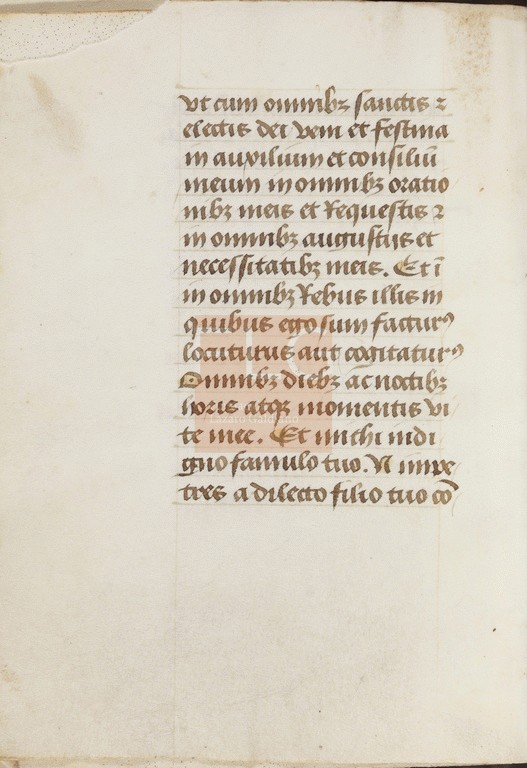 vt cum omnibꝫ sanctis ⁊
electis dei veni et festina
in auxilium et consiliū
meum in omnibꝫ oratio
nibꝫ meis et requestis ⁊
in omnibꝫ augustijs et
necessitatibꝫ meis. Et ī
in omnibꝫ rebus illis in
quibus ego sum facturꝰ
locuturus aut cogitaturꝰ
Omnibꝫ diebꝫ ac noctibꝫ
horis atqꝫ momentis vi
te mee. Et michi indi
gno famulo tuo. N impe
tres a dilecto filio tuo cō